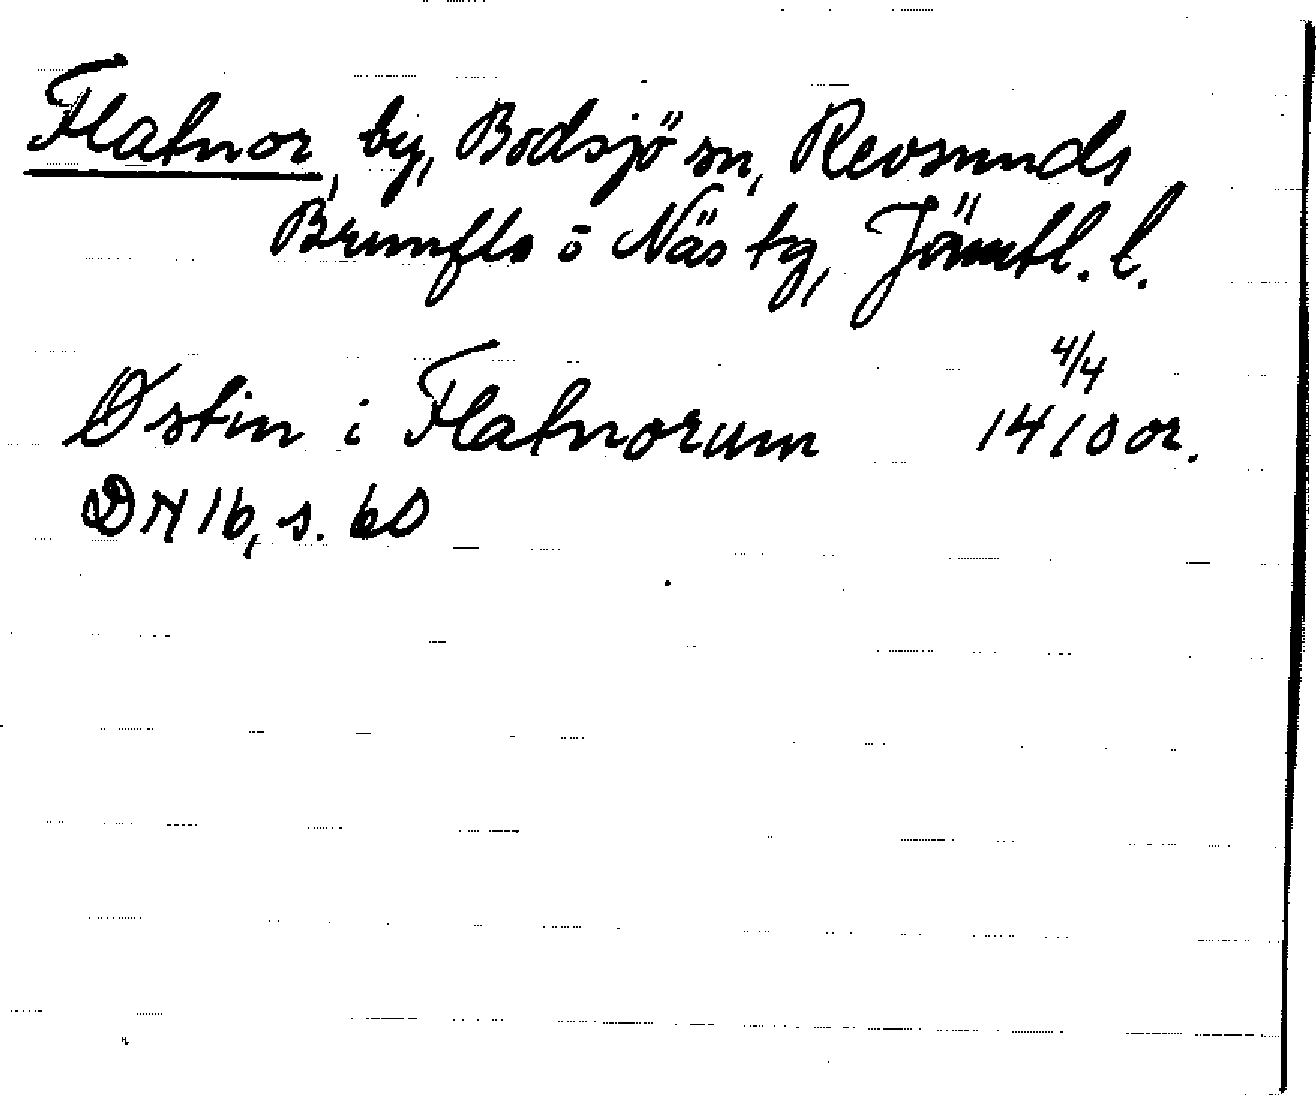 Flatnor, by, Bodsjö sn, Revsunds
Brunflo o Näs tg, Jämtl. l.
Østin i Flatnorum 4/4 1410 or.
DN 16, s. 60